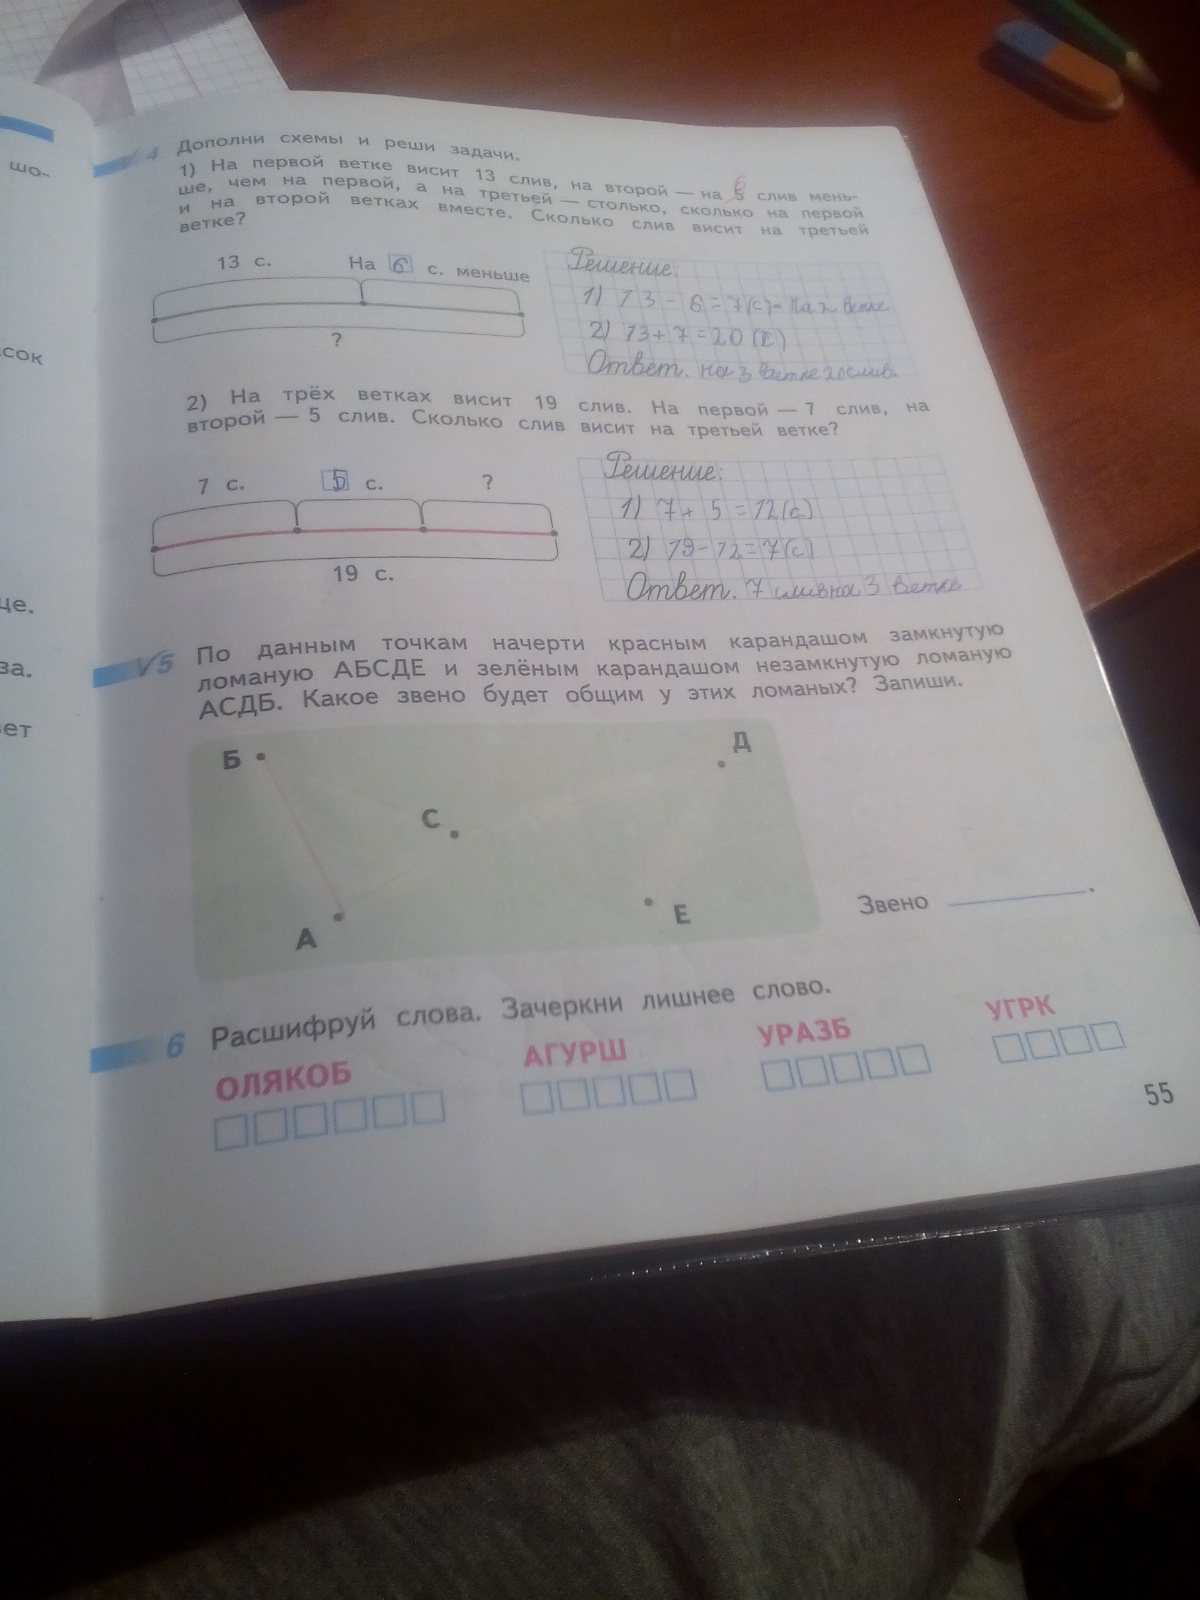 шо-
сок
це.
за.
вет
4 Дополни схемы и реши задачи.
1) На первой ветке висит 13 слив, на второй — на 6 слив мень-
ше, чем на первой, а на третьей — столько, сколько на первой
и на второй ветках вместе. Сколько слив висит на третьей
ветке?
13 с. На 6 с. меньше
?
Решение:
1) 13 - 6 = 7 (с) - На 2 ветке
2) 13 + 7 = 20 (с)
Ответ. на 3 ветке 20 слив.
2) На трёх ветках висит 19 слив. На первой — 7 слив, на
второй — 5 слив. Сколько слив висит на третьей ветке?
7 с. 5 с. ?
19 с.
Решение:
1) 7 + 5 = 12 (с)
2) 19 - 12 = 7 (с)
Ответ. 7 слив на 3 ветке
5 По данным точкам начерти красным карандашом замкнутую
ломаную АБСДЕ и зелёным карандашом незамкнутую ломаную
АСДБ. Какое звено будет общим у этих ломаных? Запиши.
Б
Д
С
А
Е
Звено .
6 Расшифруй слова. Зачеркни лишнее слово.
ОЛЯКОБ АГУРШ УРАЗБ УГРК
55